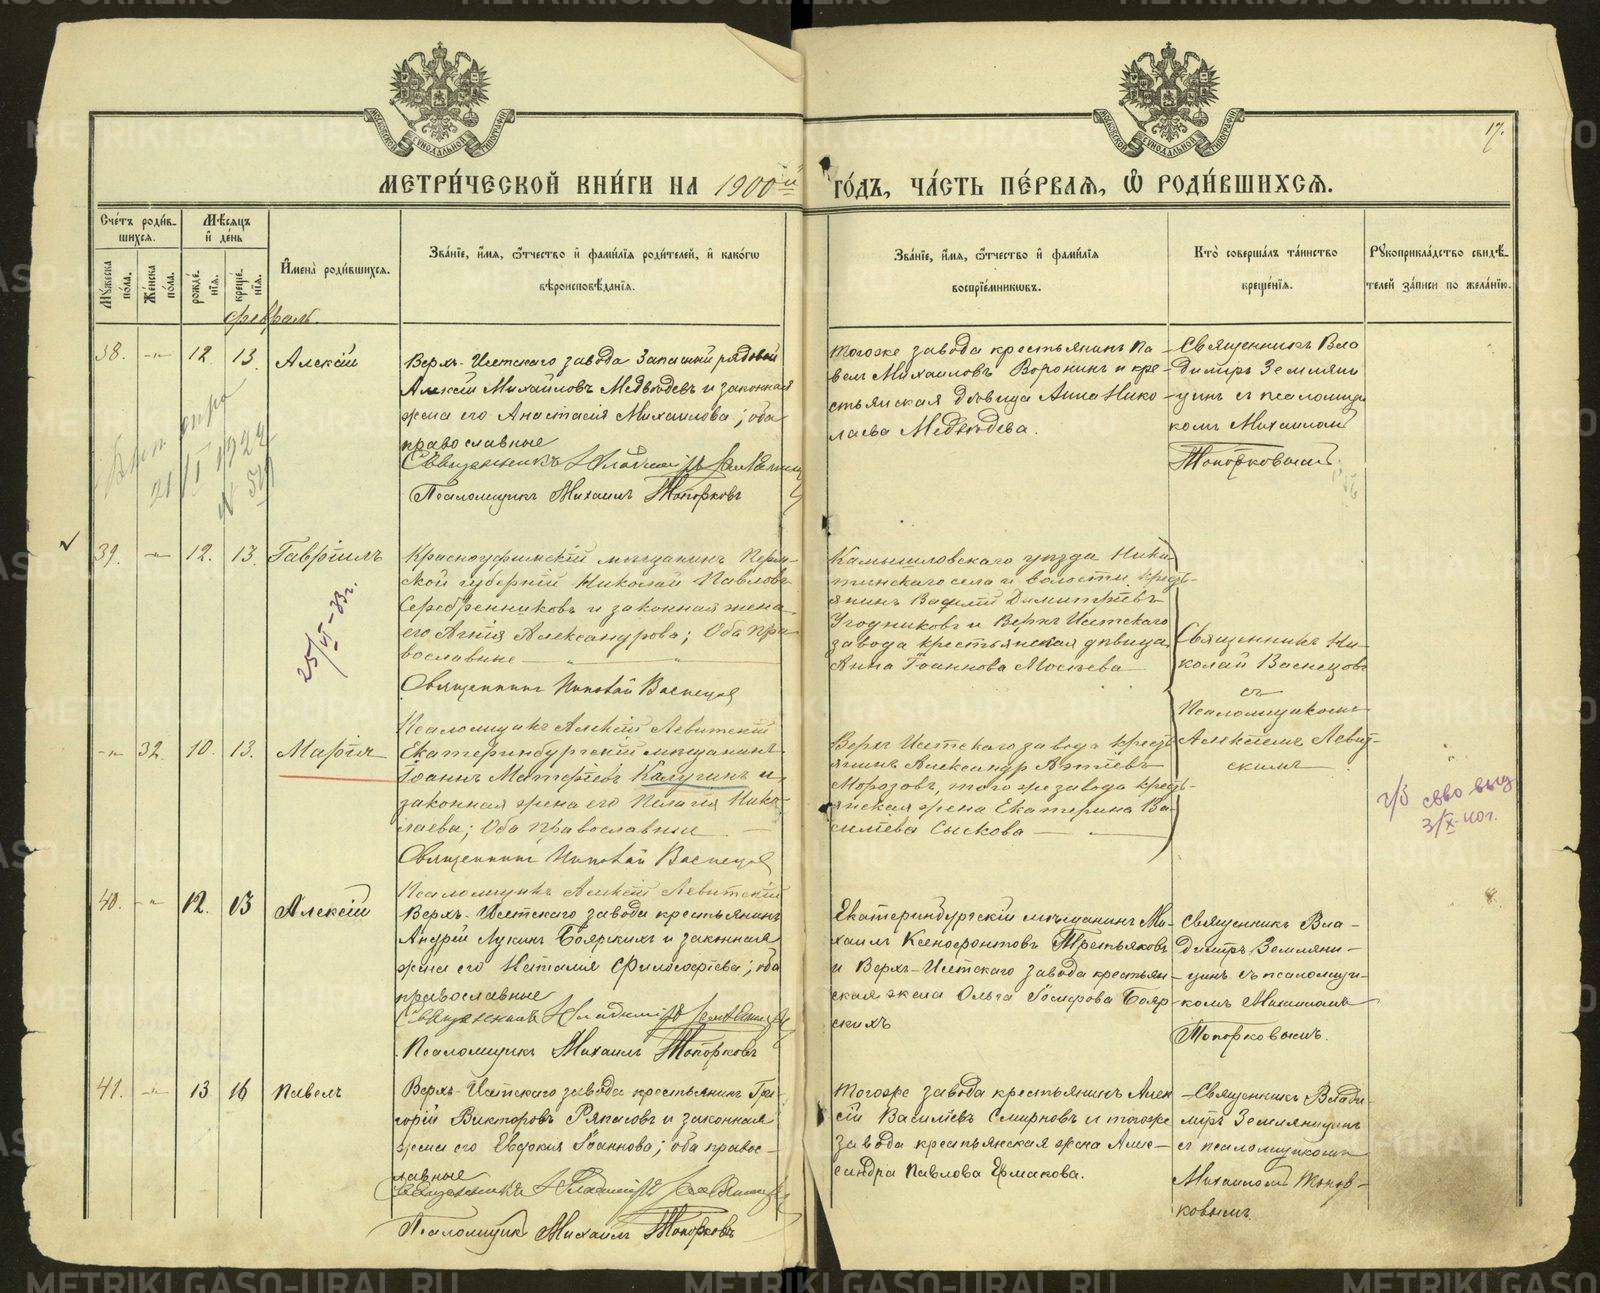 17.
МЕТРИ́ЧЕСКОЙ КНИ́ГИ НА 1900й ГО́ДЪ, ЧА́СТЬ ПЕ́РВАЯ, Ѡ РОДИ́ВШИХСЯ.
Сче́тъ роди́в-
шихся.
Мꙋжеска пола.
Же́нска по́ла.
Мѣ́сяцъ
и де́нь
рожде́нїя.
креще́нїя.
И҆мена̀ роди́вшихся.
Зва́нїе, и҆́мя, ѻ҆́тчество и҆ фами́лїя роди́телей, и҆ како́гѡ
вѣроисповѣ́данїя.
Зва́нїе, и҆́мя, ѻ҆́тчество и҆ фами́лїя
воспрїе́мникѡвъ.
Кто̀ соверша́лъ та́инство
креще́нїя.
Рꙋкоприкла́дство свидѣ́-
телей за́писи по жела́нїю.
февраль.
38. -"- 12. 13. Алексій
Верхъ-Исетскаго завода запасный рядовой
Алексій Михайловъ Медвѣдевъ и законная
жена его Анастасія Михаилова; оба
православные
Священникъ Владиміръ Земляницынъ
Псаломщикъ Михаилъ Топорковъ
тогоже завода крестьянинъ Па-
велъ Михаиловъ Воронинъ и кре-
стьянская дѣвица Анна Нико-
лаева Медвѣдева.
Священникъ Вла-
димиръ Земляни-
цынъ съ псаломщи-
комъ Михаиломъ
Топорковымъ.
21/I 1922
39. -"- 12. 13. Гавріилъ
25/VI-33г.
Красноуфимскій мѣщанинъ Перм-
ской губерніи Николай Павловъ
Серебренниковъ и законная жена
его Агнія Александрова; Оба пра-
вославные
Священникъ Николай Васнецов
Псаломщикъ Алексій Левитскій
Камышловскаго уѣзда Ники-
тинскаго села и волости крестъ-
янинъ Василій Димитріевъ
Угодниковъ и Верхъ Исетскаго
завода крестьянская дѣвица
Анна Іоаннова Мосѣева
Священникъ Ни-
колай Васнецовъ
съ
Псаломщикомъ
Алексіемъ Левит-
скимъ
-"- 32. 10. 13. Марія
Екатеринбургскій мѣщанинъ
Іоаннъ Матфіевъ Калугинъ и
законная жена его Пелагія Нико-
лаева; Оба православные.
Священникъ Николай Васнецов
Псаломщикъ Алексій Левитскій
Верхъ Исетскаго завода крестъ-
янинъ Александръ
Морозовъ, того же завода крестъ-
янская жена Екатерина Ва-
силіева Сыскова
3/X-40г.
40. -"- 12. 13 Алексій
Верхъ-Исетскаго завода крестьянинъ
Андрей Лукинъ Боярскихъ и законная
жена его Наталія Философіева; оба
православные
Священникъ Владиміръ Земляницынъ
Псаломщикъ Михаилъ Топорковъ
Екатеринбургскій мѣщанинъ Ми-
хаилъ Ксенофонтовъ Третьяковъ
и Верхъ-Исетскаго завода крестьян-
ская жена Ольга Іосифова Бояр-
скихъ
Священникъ Вла-
димиръ Земляни-
цынъ съ псаломщи-
комъ Михаиломъ
Топорковымъ.
41. -"- 13 16 Павелъ
Верхъ-Исетскаго завода крестьянинъ Гри-
горій Викторовъ Ряпасовъ и законная
жена его Евдокія Іоаннова; оба право-
славные
Священникъ Владиміръ Земляницынъ
Псаломщикъ Михаилъ Топорковъ
тогоже завода крестьянинъ Алек-
сѣй Василіевъ Смирновъ и тогоже
завода крестьянская жена Алек-
сандра Павлова Ермакова.
Священникъ Влади-
миръ Земляницынъ
съ псаломщикомъ
Михаиломъ Топор-
ковымъ.
METRIKI.GASO-URAL.RU